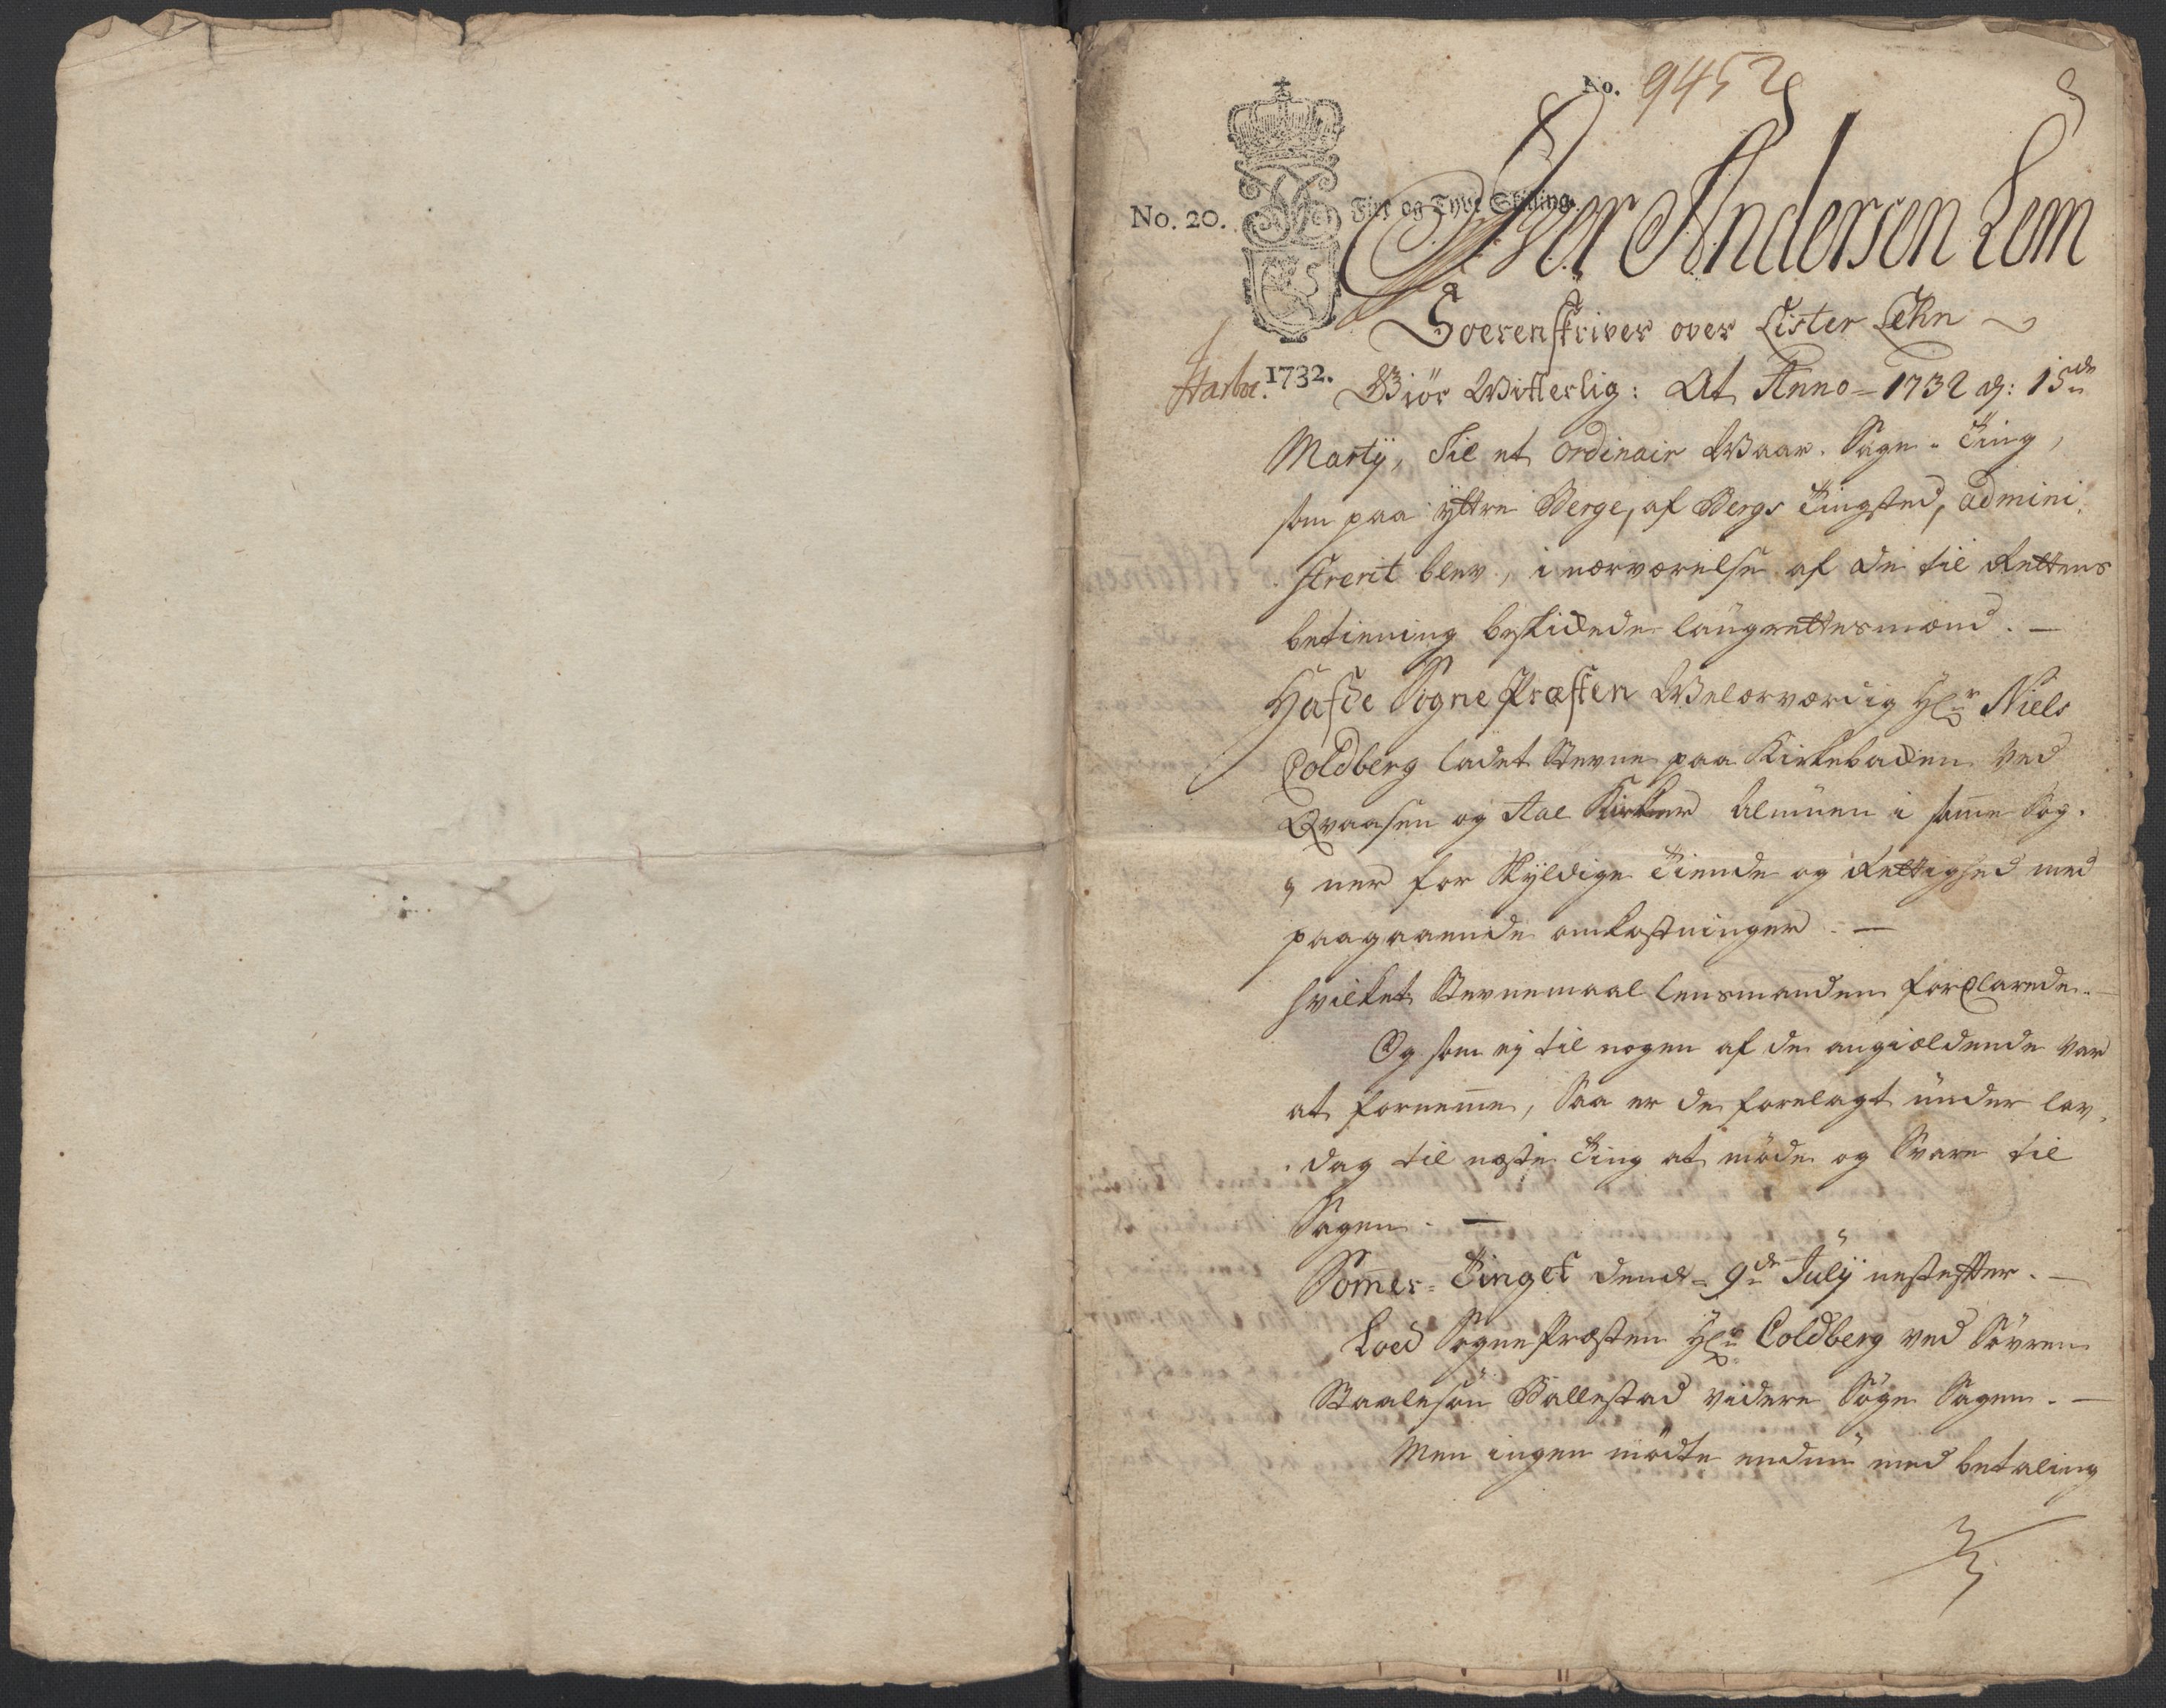 No. 9452
No. 20. Fire og Tyve Skilling.
Iver Andersen Lem
Soerenskriver over Lister Lehn
Harboe. 1732. Giör Witterlig: At Anno 1732 d: 15de
Martij, Til et ordinair Waar-Sage-Ting,
som paa ÿttre Berge, af Bergs Tingsted, admini-
strerit blev, i nærværelse af de til Rettens
betiening beskikede laugrettesmænd. —
Hafde Sogne Præsten Welærværdig Hr Niels
Coldberg ladet Stevne paa Kirkebaken ved
Qvaasen og Aae Kirker Almuen i samme Sog-
ner for Skÿldige Tiende og Rettighed med
paagaaende omkostninger. —
hvilket Stevnemaal lensmanden forclarede. —
Og som ej til nogen af de angiældende var
at fornemme, Saa er de forelagt under lav-
dag til næste Ting at möde og Svare til
Sagen. —
Sommer-Tinget dend 9de Julÿ nestefter. —
Loed SognePræsten Hr Coldberg ved Sövren
Staalesön Wallestad videre Söge Sagen. —
Men ingen mödte endnu med betaling